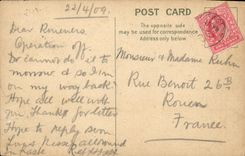 22/4/09.
POST CARD
The opposite side
may be used for communi
Address only below
Dear Roueners
Operation off.
Dr cannot do it to
morrow & so I'm on
my way back
Hope all well with
you. Thanks for letters
Hope to reply soon
Love, Kisses all round
In haste
Monsieur & Madame Ruhn
Rue Benoit 26B
Rouen
France